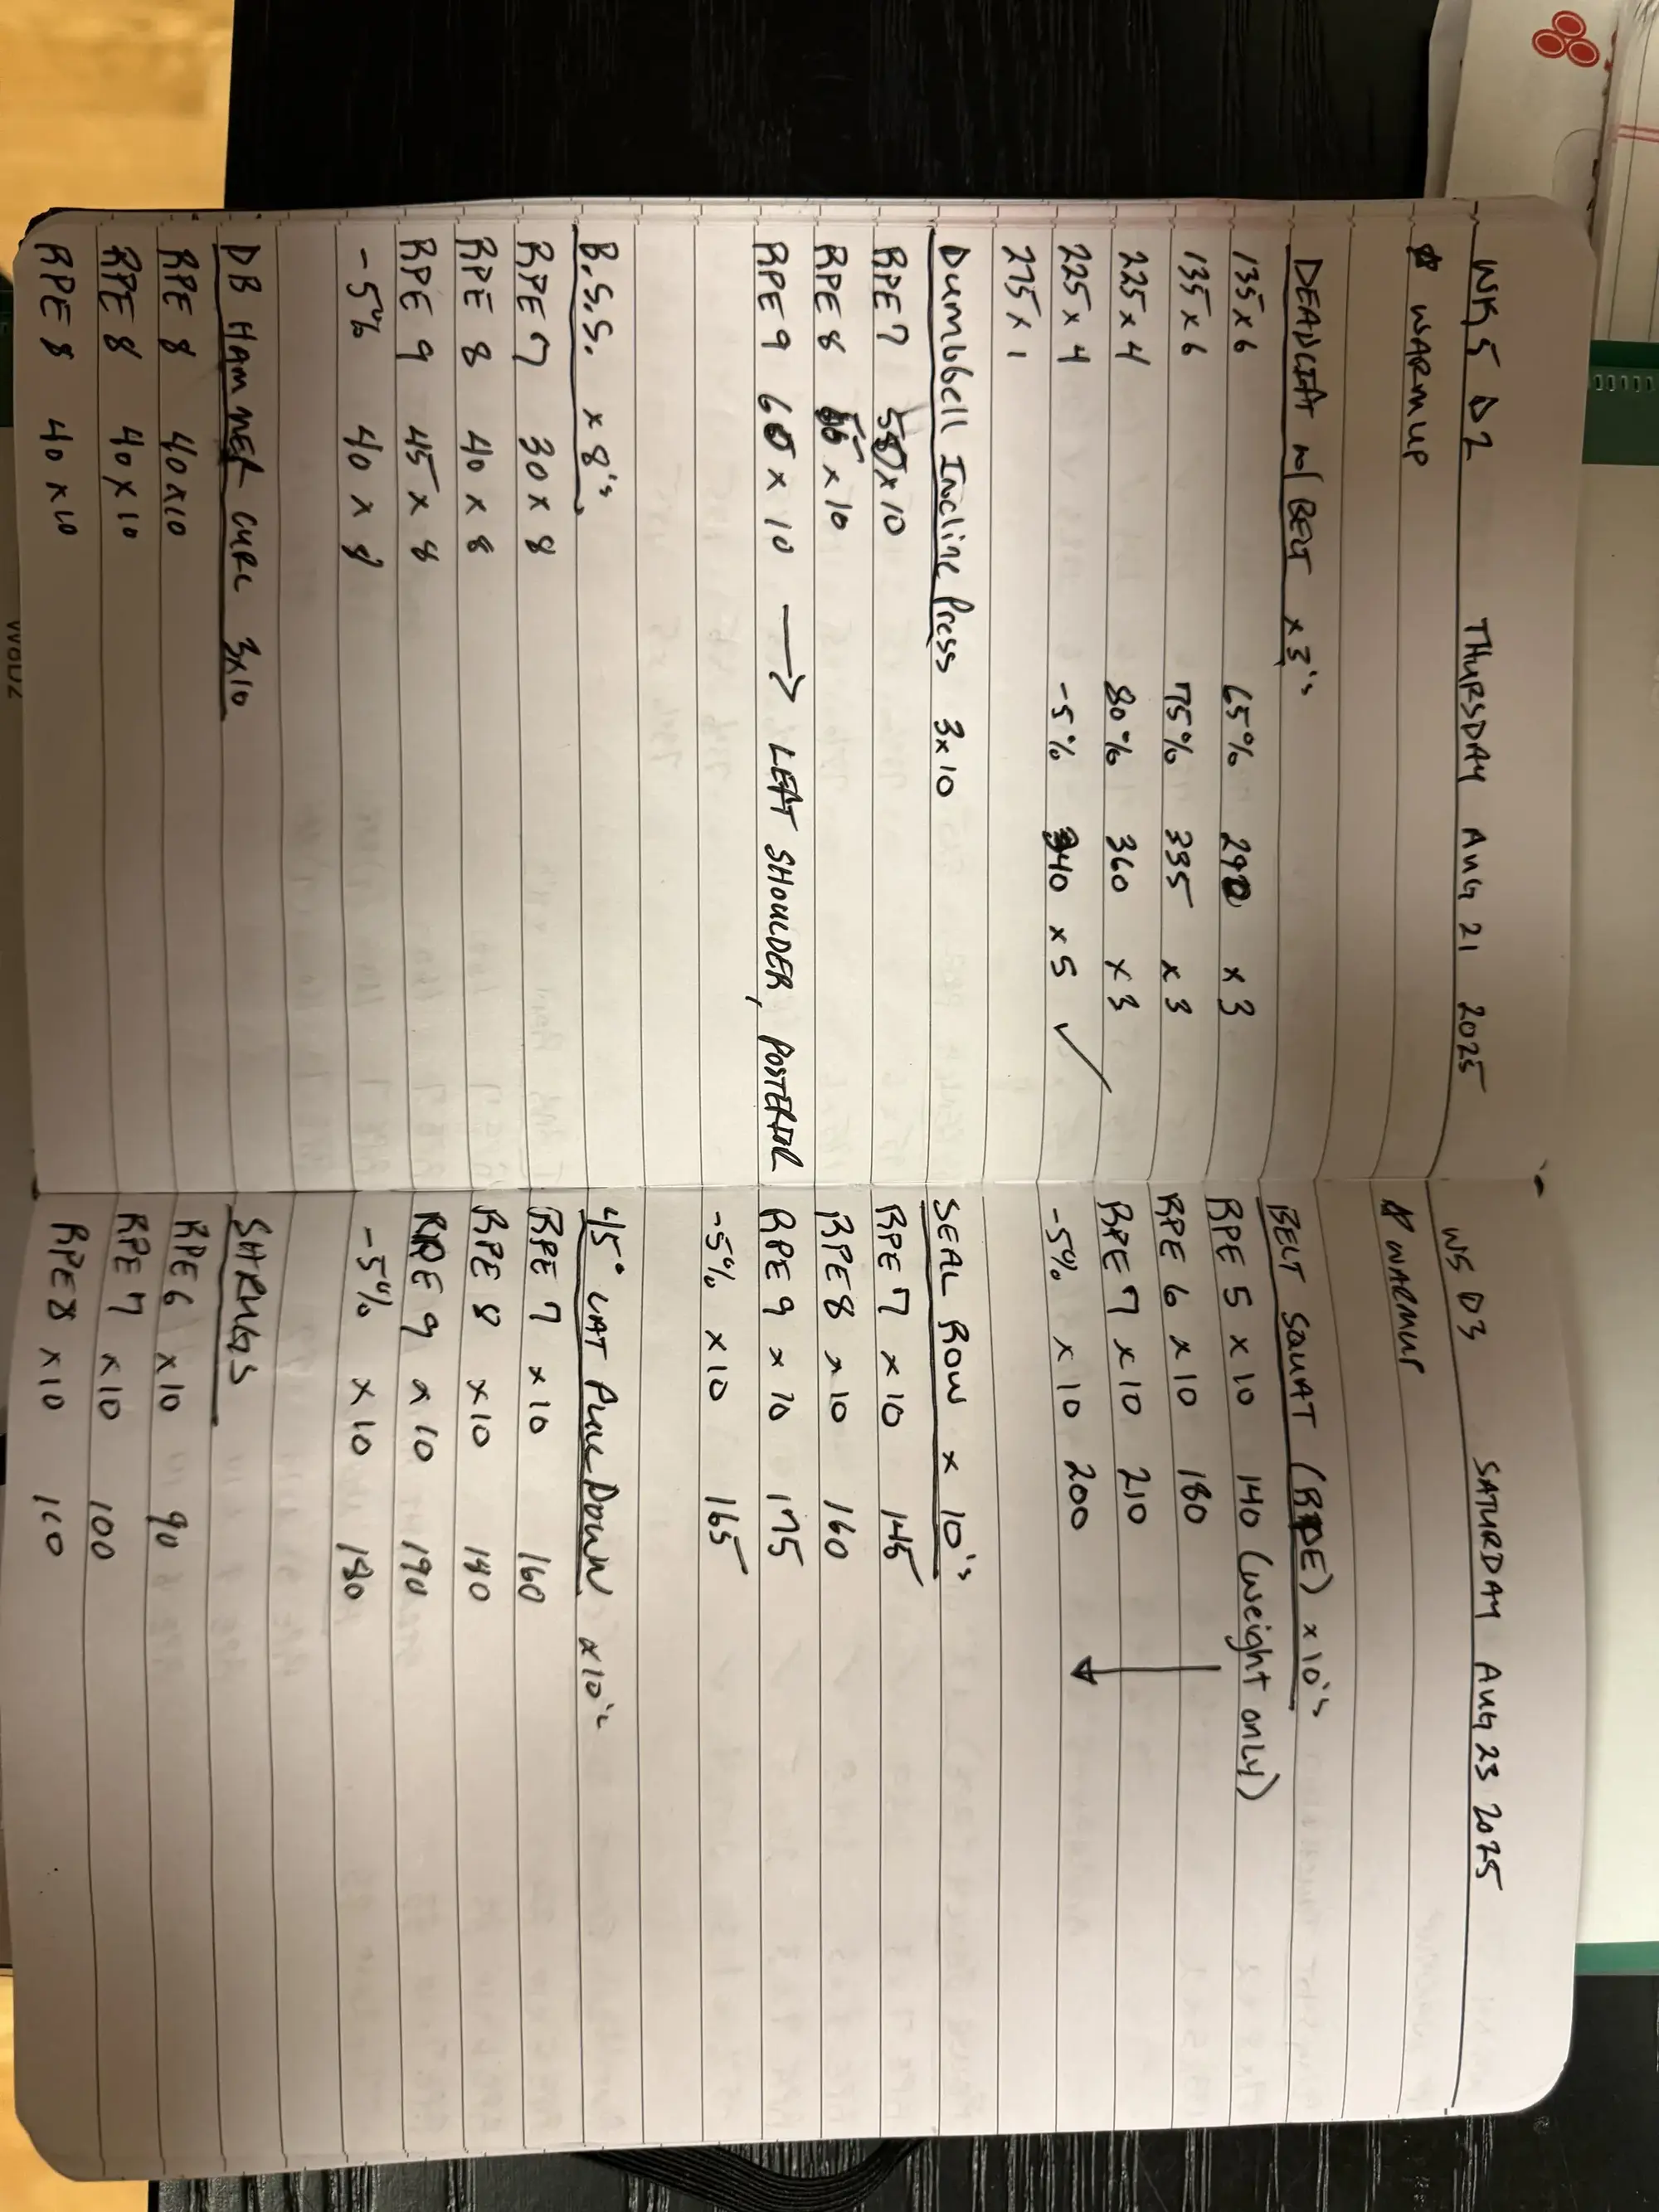 WK 5 D2 THURSDAY AUG 21 2025
WARMUP
DEADLIFT w/ BELT x3's
135 x 6 65% 290 x 3
135 x 6 75% 335 x 3
225 x 4 80% 360 x 3
225 x 4 -5% 340 x 5 ✓
275 x 1
Dumbbell Incline Press 3x10
RPE 7 50 x 10
RPE 8 x 10
RPE 9 60 x 10 → LEFT SHOULDER, POSTERIOR
B.S.S. x 8's
RPE 7 30 x 8
RPE 8 40 x 8
RPE 9 45 x 8
-5% 40 x 8
DB HAMMER CURL 3x10
RPE 8 40 x 10
RPE 8 40 x 10
RPE 8 40 x 10
W5 D3 SATURDAY AUG 23 2025
WARMUP
BELT SQUAT (RPE) x 10's
RPE 5 x 10 140 (weight only)
RPE 6 x 10 180
RPE 7 x 10 210
-5% x 10 200
SEAL ROW x 10's
RPE 7 x 10 145
RPE 8 x 10 160
RPE 9 x 10 175
-5% x 10 165
45° LAT PULL DOWN x10's
RPE 7 x 10 160
RPE 8 x 10 180
RPE 9 x 10 190
-5% x 10 180
SHRUGS
RPE 6 x 10 90
RPE 7 x 10 100
RPE 8 x 10 110